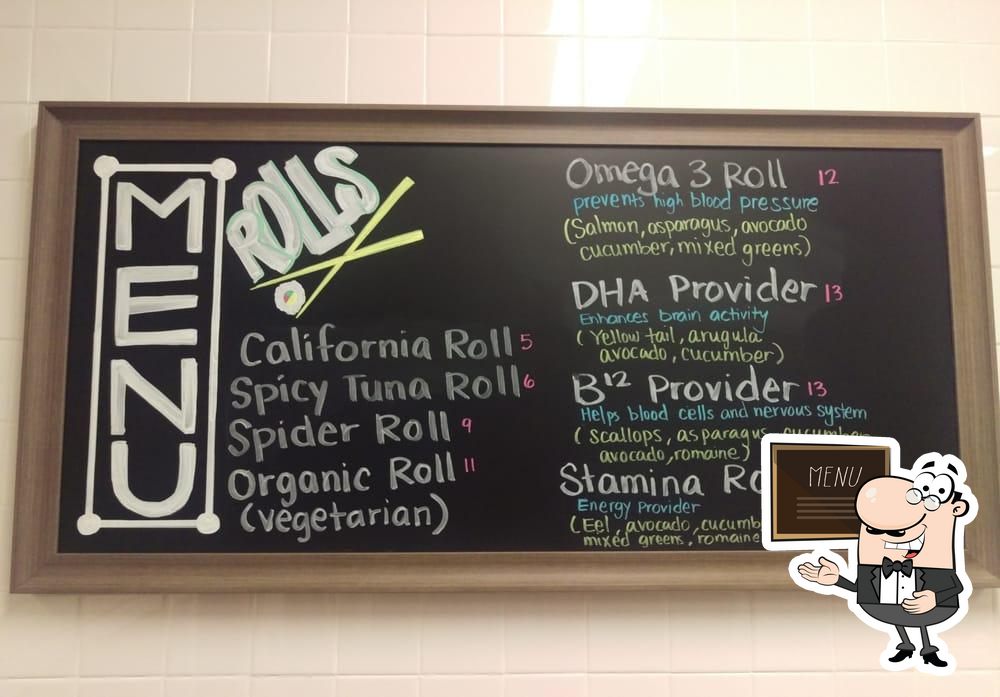 MENU
ROLLS
California Roll 5
Spicy Tuna Roll 6
Spider Roll 9
Organic Roll 11
(vegetarian)
Omega 3 Roll 12
prevents high blood pressure
(Salmon, asparagus, avocado
cucumber, mixed greens)
DHA Provider 13
Enhances brain activity
(Yellow tail, arugula
avocado, cucumber)
B12 Provider 13
Helps blood cells and nervous system
(scallops, asparagus, cucumber
avocado, romaine)
Stamina Ro
Energy Provider
(Eel, avocado, cucumb
mixed greens, romaine
MENU